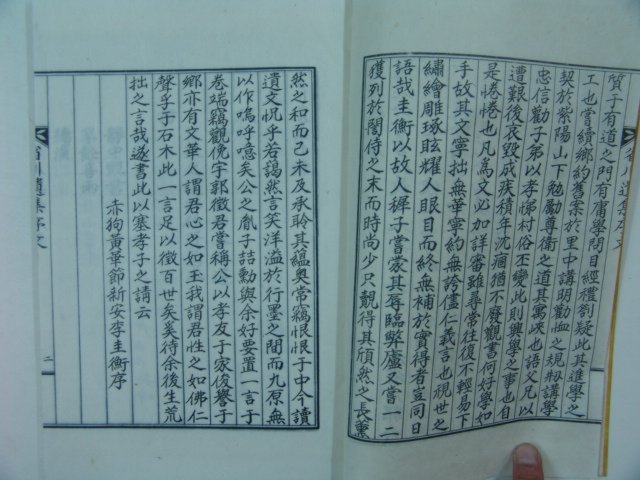 質子有道之門有庸學問目經禮劄疑此其進學之
工也當續鄉約舊案於里中講明勸恤之規刱講學
契於紫陽山下勉勵尊衛之道其寓峽也語文凡以
忠信勸子弟以孝悌村俗丕變此則興學之事也自
遭艱後哀毀成疾積年沈痼猶不廢觀書何好學如
是惓惓也凡爲文必加詳審雖尋常往復不輕易下
手故其文寧拙無華寧約無誇儘仁義言也視世之
繡繪雕琢眩耀人眼目而終無補於實得者豈同日
語哉圭衡以故人稺子嘗蒙其辱臨弊廬文嘗一二
獲列於誾侍之末而時尚少只覿得其頎然之長薰
然之和而已未及承聆其縕奥常竊恨恨于中今讀
遺文怳乎若藹然言笑洋溢於行墨之間而九原無
以作嗚呼噫矣公之胤子喆勳與余好要置一言于
卷端竊觀俛宇郭徵君嘗稱公以孝友于家俊譽于
鄉亦有文華人謂君心之如玉我謂君性之如佛仁
聲孚于石木此一言足以徵百世矣奚待余後生荒
拙之言哉遂書此以塞孝子之請云
赤狗黃華節新安李圭衡序
省川遺集序文
二